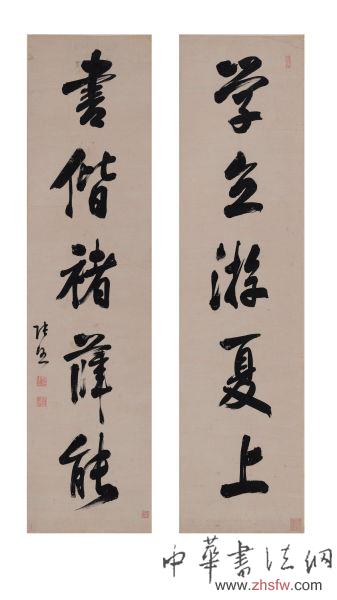 学立游夏上
書偕褚薛能
張照
中華書法網
www.zhsfw.com